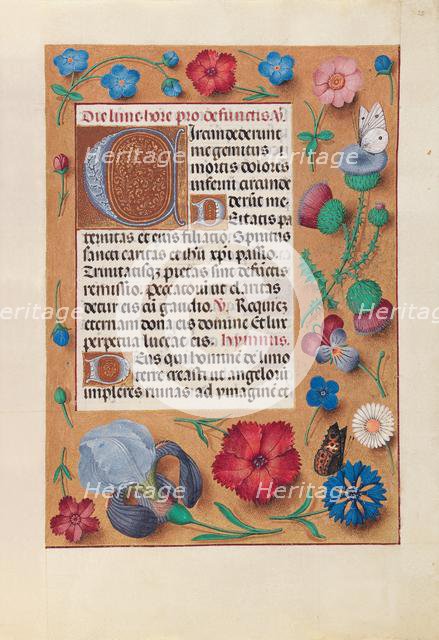 Die lune hore pro defunctis. V.
Circundederunt
me gemitus
mortis dolores
inferni circunde
derunt me.
Deitatis pa
ternitas et eius filiatio. Spiritus
sancti caritas et ihu xpi passio.
Trinitatisq; pietas sint defuctis
remissio. Peccatori ut claritas
detur eis cu gaudio. V. Requie
eternam dona eis domine Et lux
perpetua luceat eis. hymnus.
Deus qui homine de limo
terre creasti ut angeloru
impleres ruinas ad ymagine et
Heritage